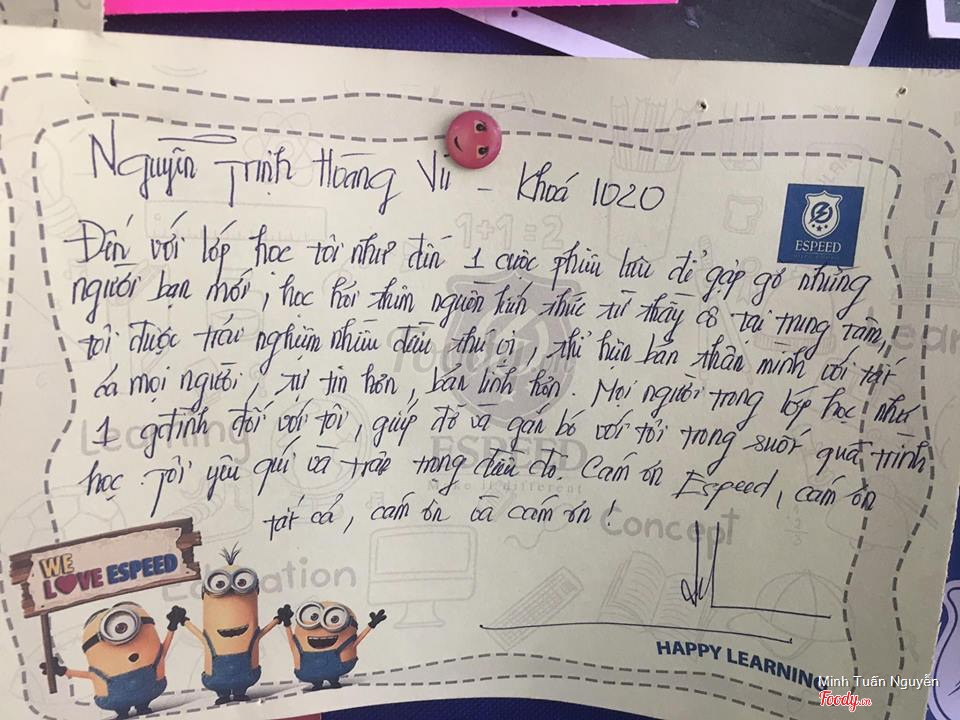 Nguyễn Trịnh Hoàng Vũ - Khoá 1020
ESPEED
1+1=2
Đến với lớp học tôi như đến 1 cuộc phiêu lưu để gặp gỡ những
người bạn mới, học hỏi thêm nguồn kiến thức từ thầy cô tại trung tâm,
tôi được trải nghiệm nhiều điều thú vị, thể hiện bản thân mình với tất
cả mọi người, tự tin hơn, bản lĩnh hơn. Mọi người trong lớp học như
1 gđình đối với tôi, giúp đỡ và gắn bó với tôi trong suốt quá trình
học. Tôi yêu quí và trân trọng điều đó. Cám ơn Espeed, cám ơn
tất cả, cám ơn và cám ơn!
Learning
Foody.vn
ESPEED
Make it different
Concept
Education
WE
LOVE ESPEED
HAPPY LEARNING
Minh Tuấn Nguyễn
Foody.vn